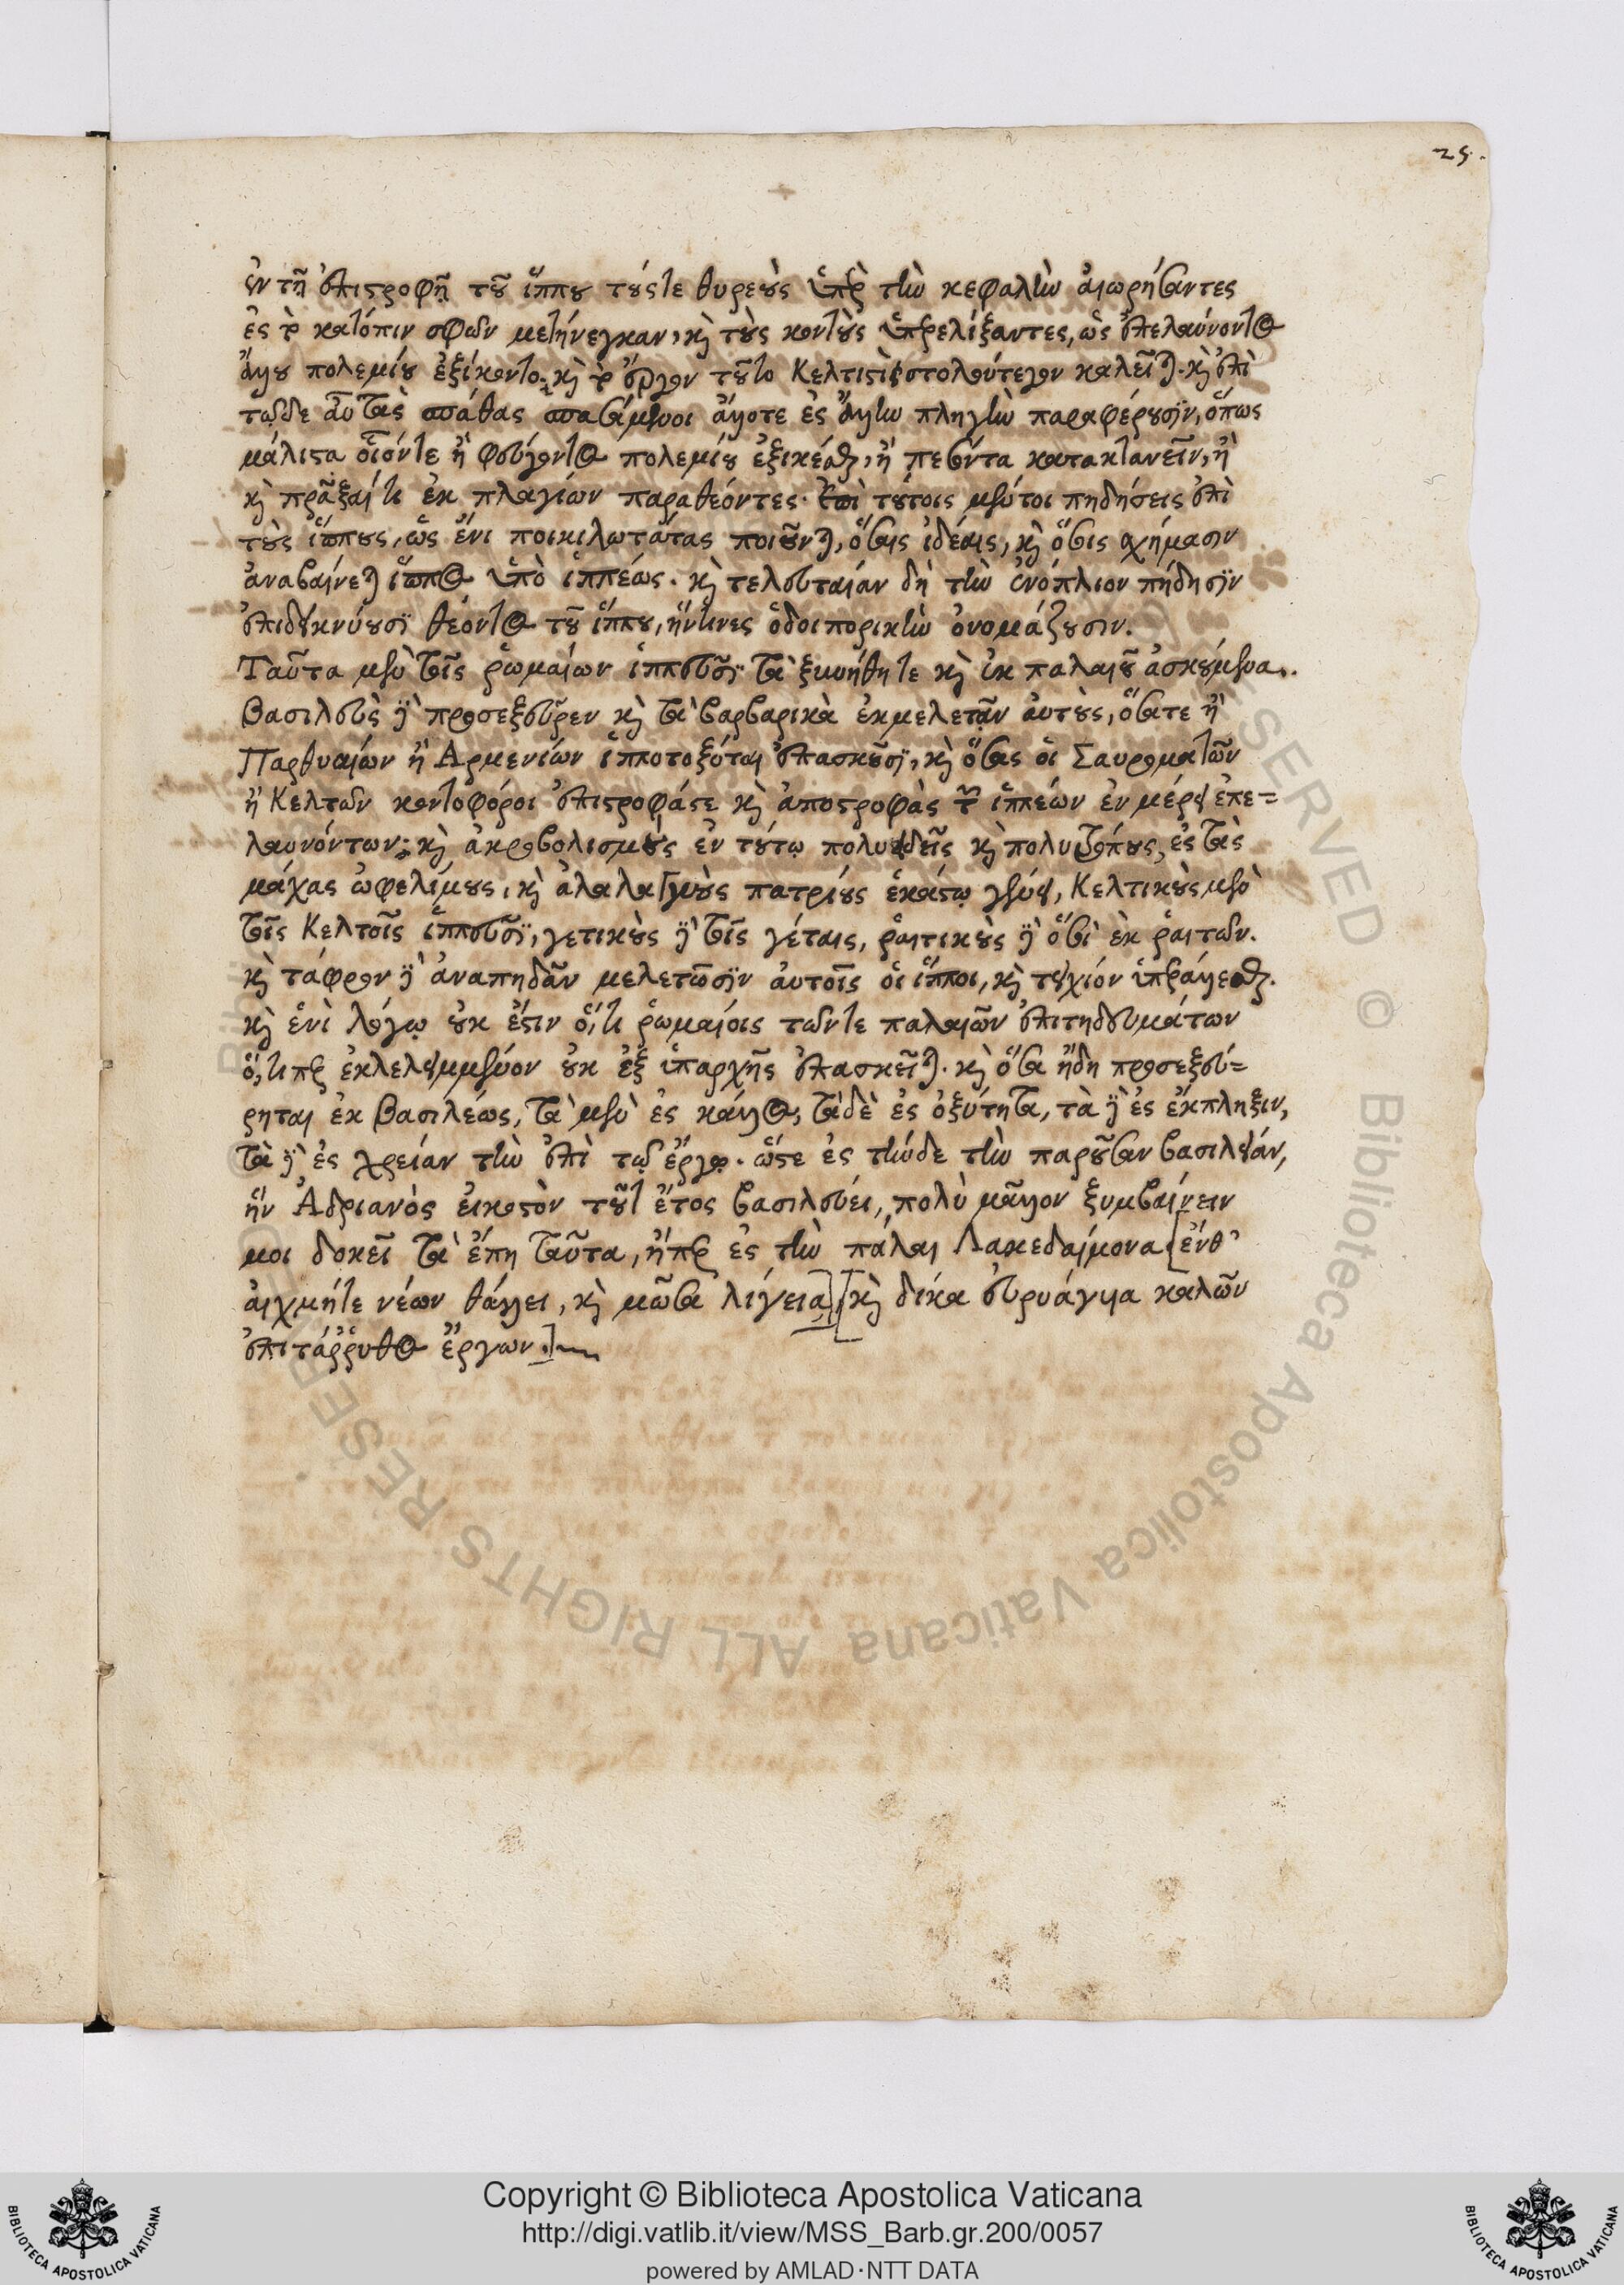 25.
ἐν τῇ ἐπιστροφῇ τοῦ ἵππου τούς τε θυρεοὺς ὑπὲρ τὴν κεφαλὴν αἰωρήσαντες
ἐς τὸ κατόπιν σφῶν μετήνεγκαν, καὶ τοὺς κοντοὺς ὑπερελίξαντες, ὡς ἐπελαύνοντος
ἄλλου πολεμίου ἐξίκοντο, καὶ τὸ ἔργον τοῦτο Κελτιστὶ στολούτεγον καλεῖται. καὶ ἐπὶ
τῷδε αὖ τὰς σπάθας σπασάμενοι ἄλλοτε ἐς ἄλλην πληγὴν παραφέρουσϊν, ὅπως
μάλιστα οἷόν τε ἢ φεύγοντος πολεμίου ἐξικέσθαι, ἢ πεσόντα κατακτανεῖν, ἢ
καὶ πρᾶξαί τι ἐκ πλαγίων παραθέοντες. ἐπὶ τούτοις μέντοι πηδήσεις ἐπὶ
τοὺς ἵππους, ὡς ἔνι ποικιλωτάτας ποιοῦνται, ὅσαις ἰδέαις, καὶ ὅσοις σχήμασιν
ἀναβαίνεται ἵππος ὑπὸ ἱππέως. καὶ τελευταίαν δὴ τὴν ἐνόπλιον πήδησϊν
ἐπιδεικνύουσϊ θέοντος τοῦ ἵππου, ἥντινες ὁδοιπορικὴν ὀνομάζουσιν.
Ταῦτα μὲν τοῖς ῥωμαίων ἱππεῦσϊ τὰ ξυνήθη τε καὶ ἐκ παλαιοῦ ἀσκούμενα.
Βασιλεὺς δὲ προσεξεῦρεν καὶ τὰ βαρβαρικὰ ἐκμελετᾷν αὐτοὺς, ὅσα τε ἢ
Παρθυαίων ἢ Ἀρμενίων ἱπποτοξόται ἐπασκοῦσϊ, καὶ ὅσας οἱ Σαυροματῶν
ἢ Κελτῶν κοντοφόροι ἐπιστροφάς τε καὶ ἀποστροφὰς τῶν ἱππέων ἐν μέρει ἐπε=
λαυνόντων; καὶ ἀκροβολισμοὺς ἐν τούτῳ πολυειδεῖς καὶ πολυτρόπους, ἐς τὰς
μάχας ὠφελίμους, καὶ ἀλαλαγμοὺς πατρίους ἑκάστῳ γένει, Κελτικοὺς μὲν
τοῖς Κελτοῖς ἱππεῦσϊ, γετικοὺς δὲ τοῖς γέταις, ῥαιτικοὺς δὲ ὅσοι ἐκ ῥαιτῶν.
καὶ τάφρον δὲ ἀναπηδᾷν μελετῶσϊν αὐτοῖς οἱ ἵπποι, καὶ τειχίον ὑπεράλλεσθαι.
καὶ ἑνὶ λόγῳ οὐκ ἔστιν ὅ, τι ῥωμαίοις τῶν τε παλαιῶν ἐπιτηδευμάτων
ὅ, τι περ ἐκλελειμμένον οὐκ ἐξ ὑπαρχῆς ἐπασκεῖται. καὶ ὅσα ἤδη προσεξεύ=
ρηται ἐκ βασιλέως, τὰ μὲν ἐς κάλλος, τὰ δὲ ἐς ὀξύτητα, τὰ δὲ ἐς ἔκπληξιν,
τὰ δὲ ἐς χρείαν τὴν ἐπὶ τῷ ἔργῳ. ὥστε ἐς τήνδε τὴν παροῦσαν βασιλείαν,
ἣν Ἀδριανὸς εἰκοστὸν τοῦτ ἔτος βασιλεύει, πολὺ μᾶλλον ξυμβαίνειν
μοι δοκεῖ τὰ ἔπη ταῦτα, ἤπερ ἐς τὴν πάλαι Λακεδαίμονα [ἔνθ᾽
αἰχμή τε νέων θάλλει, καὶ μῶσα λίγεια] [καὶ δίκα εὐρυάγυια καλῶν
ἐπιτάῤῥοθος ἔργων.]
Copyright © Biblioteca Apostolica Vaticana
http://digi.vatlib.it/view/MSS_Barb.gr.200/0057
powered by AMLAD·NTT DATA